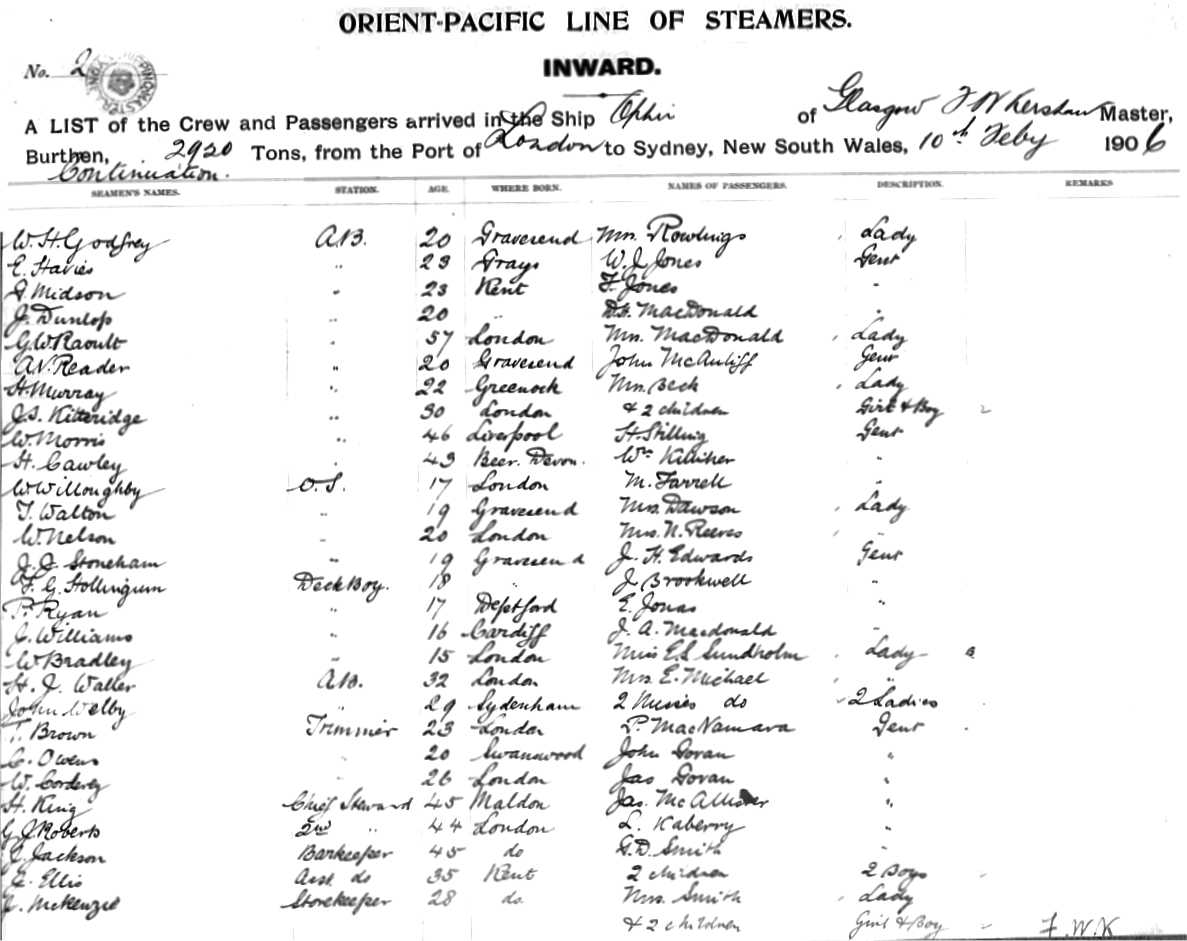 ORIENT-PACIFIC LINE OF STEAMERS.
No. 2
INWARD.
A LIST of the Crew and Passengers arrived in the Ship Ophir of Glasgow F W Kershaw Master,
Burthen, 2920 Tons, from the Port of London to Sydney, New South Wales, 10th Feby 1906
Continuation.
SEAMEN'S NAMES. STATION. AGE. WHERE BORN. NAMES OF PASSENGERS. DESCRIPTION. REMARKS
W. H. Godfrey A.B. 20 Gravesend Mrs. Rowlings Lady
E. Havies " 23 Grays W. J. Jones Gent
G. Midson " 23 Kent F. Jones "
J. Dunlop " 20 " Dr. MacDonald "
G. W Raoult " 57 London Mrs. MacDonald Lady
A. V. Reader " 20 Gravesend John McAuliff Gent
H. Murray " 22 Greenock Mrs. Beck Lady
J. S. Kitteridge " 30 London & 2 children Girl & Boy
W. Morris " 46 Liverpool H. Stilling Gent
H. Cawley " 43 Beer. Devon. Wm Killiher "
W Willoughby O.S. 17 London M. Farrell "
T. Walton " 19 Gravesend Mrs. Dawson Lady
W. Nelson " 20 London Mrs. N. Reeves "
J. J. Stoneham " 19 Gravesend J. H. Edwards Gent
F. G. Hollingum Deck Boy. 18 " J Brookwell "
P. Ryan " 17 Deptford E. Jonas "
J. Williams " 16 Cardiff J. A. Macdonald "
W Bradley " 15 London Miss E. S. Sundholm Lady
H. J. Waller A.B. 32 London Mrs. E. Michael "
John Welby " 29 Sydenham 2 Misses do 2 Ladies
T. Brown Trimmer 23 London P. MacNamara Gent
C. Owens " 20 Swanswood John Govan "
W. Corderey " 26 London Jas Govan "
H. King Chief Steward 45 Maldon Jas. McAllister "
G. J. Roberts 2nd " 44 London L. Kaberry "
J. Jackson Barkeeper 45 do G. D. Smith "
Ellis Asst do 35 Kent 2 children 2 Boys
McKenzie Storekeeper 28 do. Mrs. Smith Lady
& 2 children Girl & Boy F. W. K